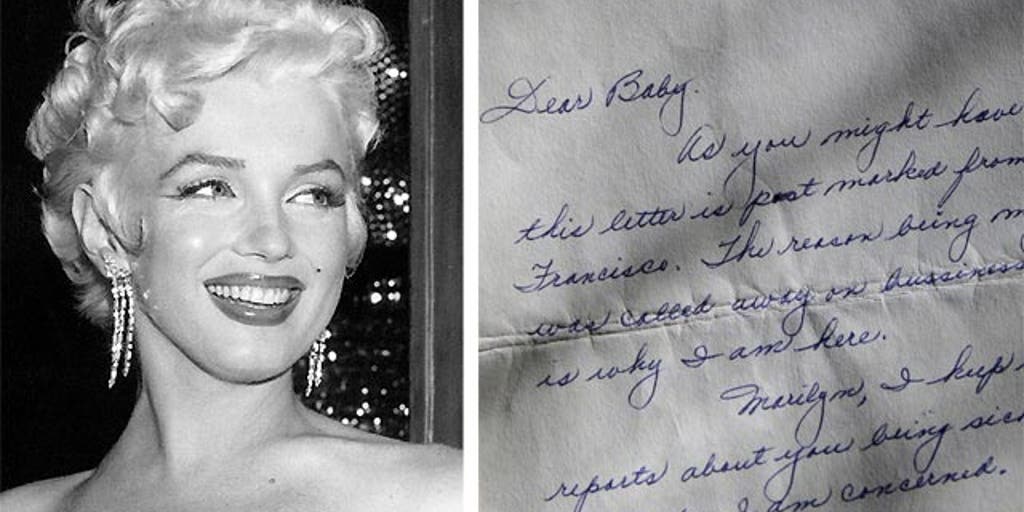 Dear Baby.
As you might have
this letter is post marked from
Francisco. The reason being m
was called away on bussiness
is why I am here.
Marilyn, I keep
reports about you being sic
I am concerned.